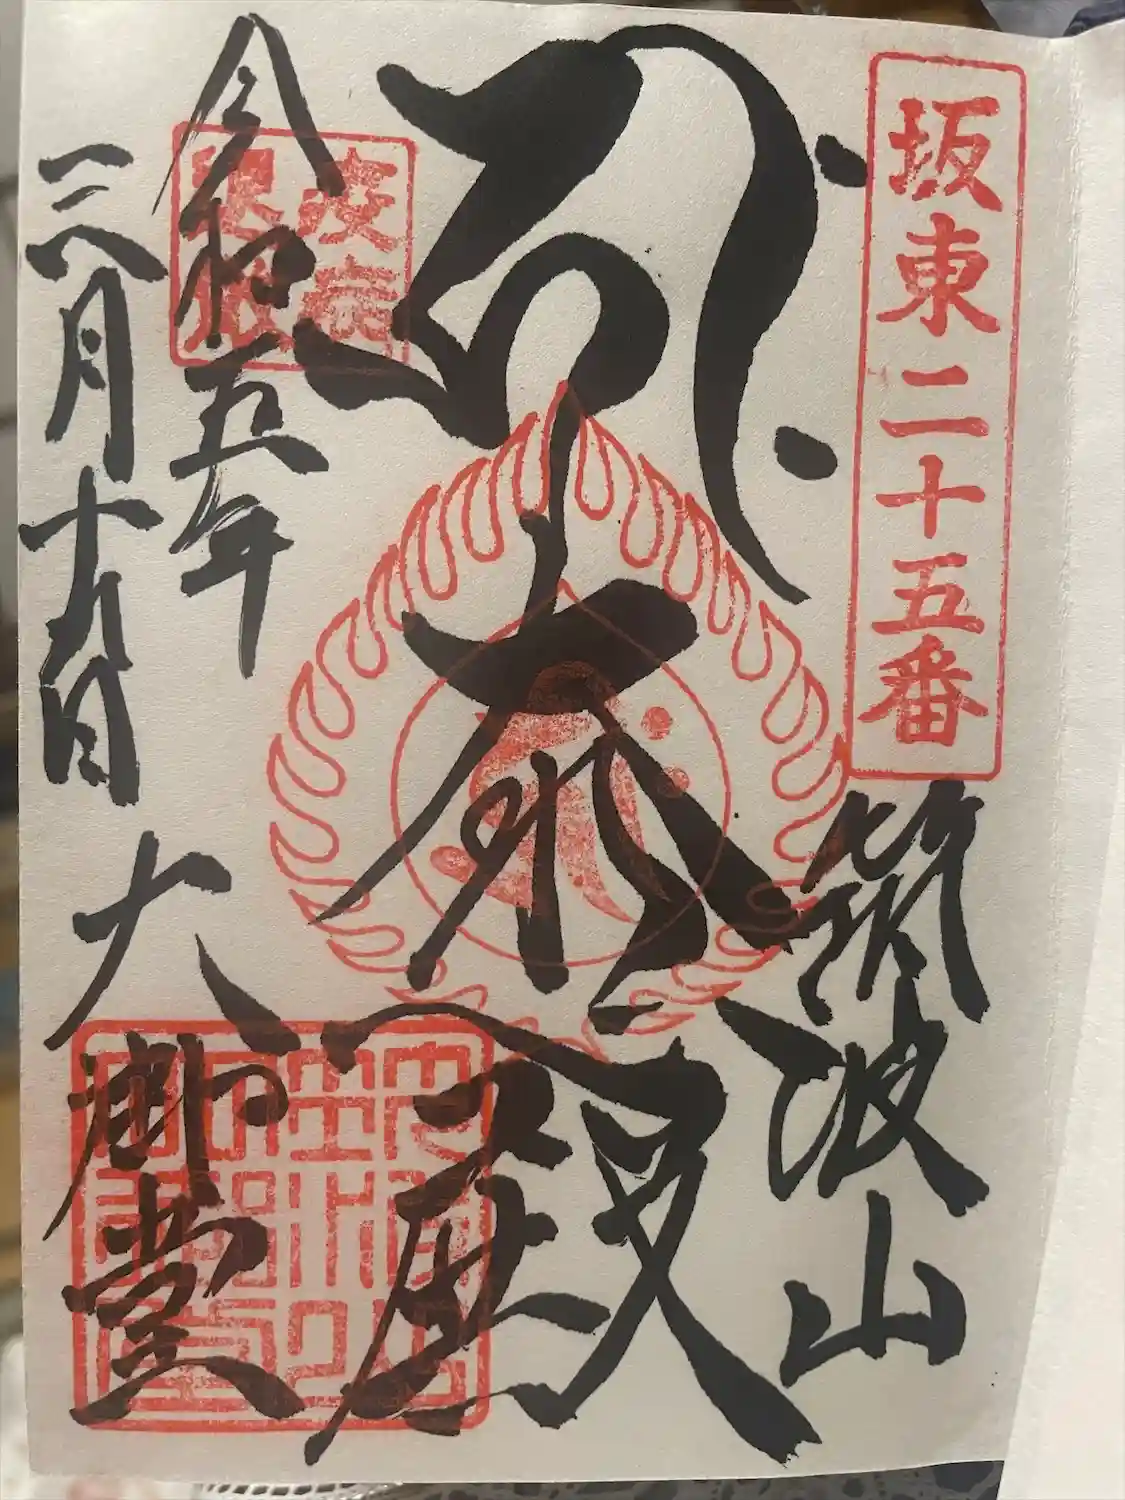 坂東二十五番
筑波山
大悲殿
令和五年
三月十九日
大御堂